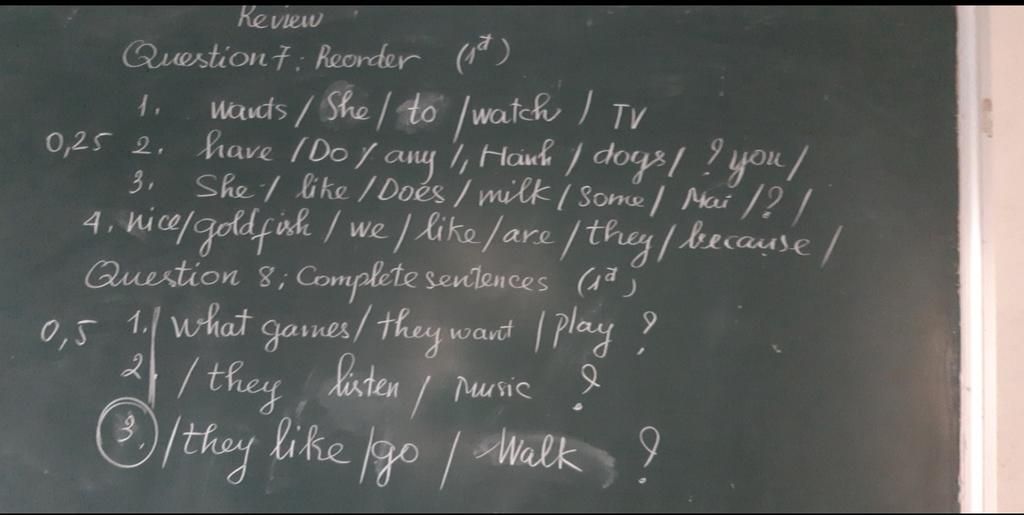 Review
Question 7: Reorder (1đ)
1. wants / She / to / watch / TV
0,25 2. have / Do / any /, Hanh / dogs / ? you /
3. She / like / Does / milk / some / Mai / ? /
4. nice / goldfish / we / like / are / they / because /
Question 8: Complete sentences (1đ)
0,5 1. / What games / they want / play ?
2. / they listen / music ?
3. / they like / go / Walk ?